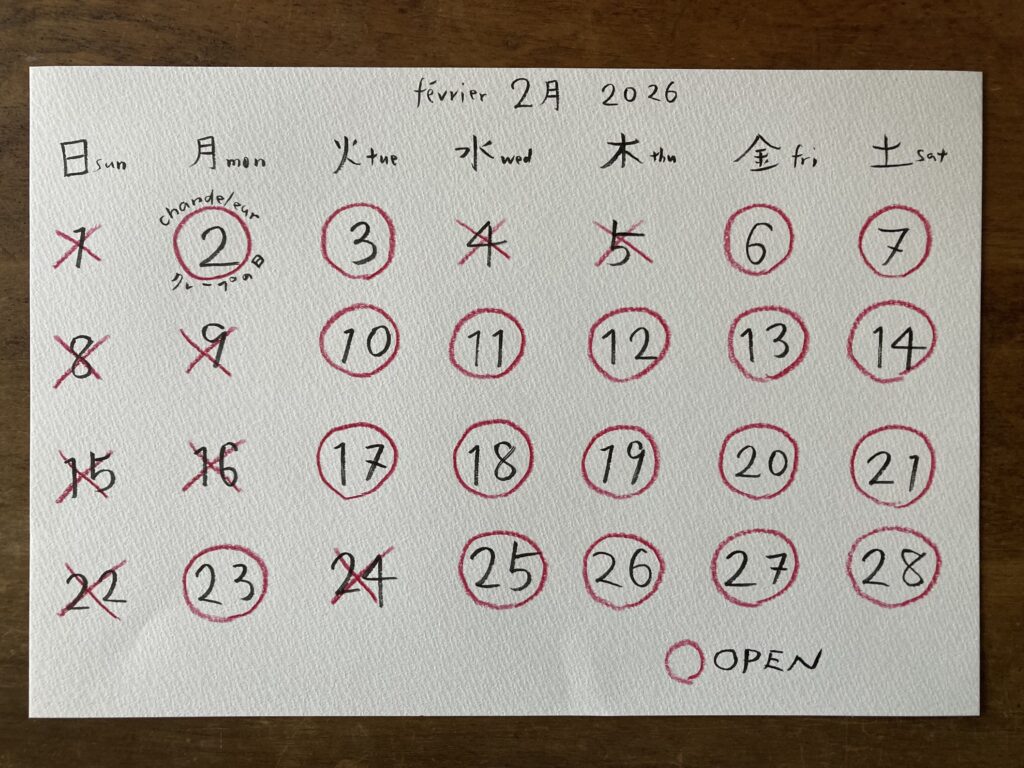 février 2月 2026
日sun 月mon 火tue 水wed 木thu 金fri 土sat
chandeleur
1 2 3 4 5 6 7
クレープの日
8 9 10 11 12 13 14
15 16 17 18 19 20 21
22 23 24 25 26 27 28
OPEN